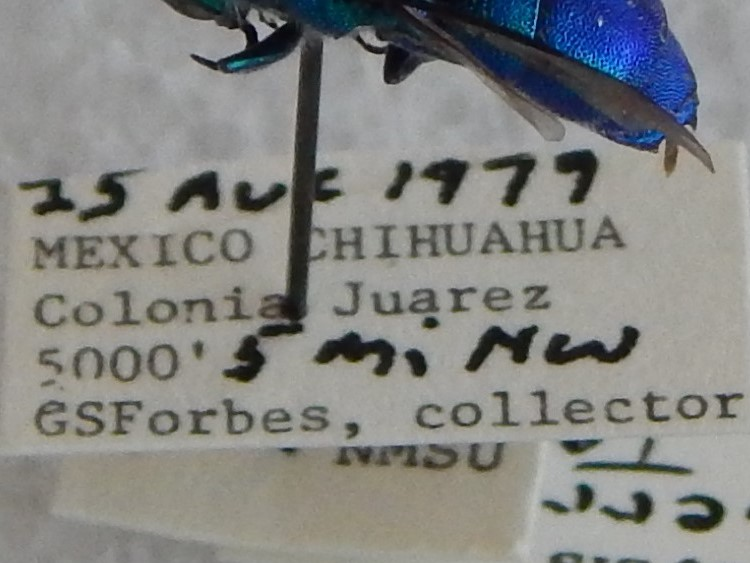 25 AUG 1979
MEXICO CHIHUAHUA
Colonia Juarez
5000' 5 mi NW
GSForbes, collector
NMSU